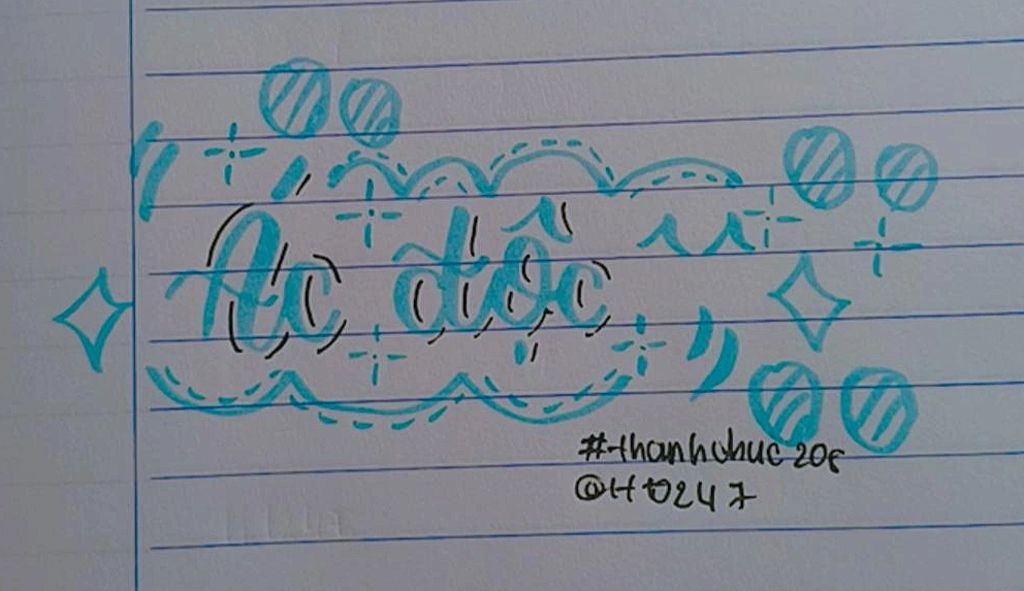 Ác độc
#thanhuhuc208
@Ht0247